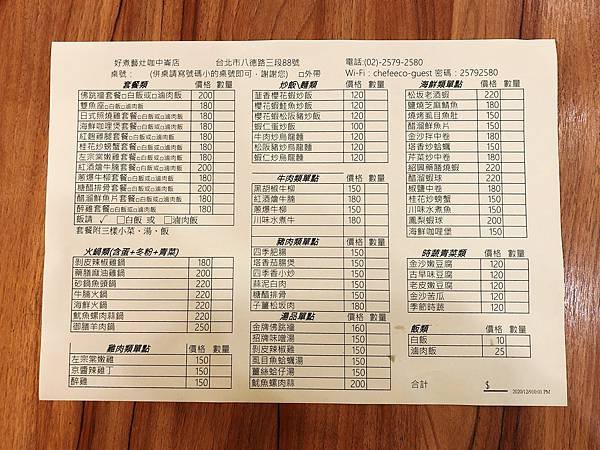 好煮藝灶咖中崙店 台北市八德路三段88號 電話:(02)-2579-2580
桌號： (併桌請寫號碼小的桌號即可，謝謝您) □外帶 Wi-Fi：chefeeco-guest 密碼：25792580
套餐類 價格 數量
佛跳牆套餐□白飯或□滷肉飯 200
雙魚座□白飯或□滷肉飯 180
日式照燒雞套餐□白飯或□滷肉飯 180
海鮮咖哩煲套餐□白飯或□滷肉飯 180
紅麴雞腿套餐□白飯或□滷肉飯 180
桂花炒螃蟹套餐□白飯或□滷肉飯 180
左宗棠嫩雞套餐□白飯或□滷肉飯 180
紅酒燴牛腩套餐□白飯或□滷肉飯 200
蔥爆牛柳套餐□白飯或□滷肉飯 180
糖醋排骨套餐□白飯或□滷肉飯 180
醋溜魚片套餐□白飯或□滷肉飯 180
醉雞套餐□白飯或□滷肉飯 180
飯請 ✓ □白飯 或 □滷肉飯
套餐附三樣小菜、湯、飯
火鍋類(含蛋+冬粉+青菜) 價格 數量
剝皮辣椒雞鍋 180
藥膳麻油雞鍋 200
砂鍋魚頭鍋 220
牛腩火鍋 220
海鮮火鍋 220
魷魚螺肉蒜鍋 220
御膳羊肉鍋 250
雞肉類單點 價格 數量
左宗棠嫩雞 150
京醬辣雞丁 150
醉雞 150
炒飯\麵類 價格 數量
韮香櫻花蝦炒飯 120
櫻花蝦鮭魚炒飯 120
櫻花蝦松阪豬炒飯 120
蝦仁蛋炒飯 100
牛肉炒烏龍麵 120
松阪豬炒烏龍麵 120
蝦仁炒烏龍麵 120
牛肉類單點 價格 數量
黑胡椒牛柳 150
紅酒燴牛腩 150
蔥爆牛柳 150
川味水煮牛 180
豬肉類單點 價格 數量
四季肥腸 150
塔香茄腸煲 150
四季香小炒 150
蒜泥白肉 150
糖醋排骨 150
子薑松坂肉 180
湯品單點 價格 數量
金牌佛跳牆 160
招牌味噌湯 150
剝皮辣椒雞 150
虱目魚蛤蠣湯 150
薑絲蛤仔湯 150
魷魚螺肉蒜 200
海鮮類單點 價格 數量
松坂老酒蝦 220
鹽燒芝麻鯖魚 180
燒烤虱目魚肚 150
醋溜鮮魚片 150
金沙拌中卷 180
塔香炒蛤蠣 150
芹菜炒中卷 180
紹興藥膳燒蝦 220
醋溜蝦球 220
椒鹽中卷 180
桂花炒螃蟹 150
川味水煮魚 150
鳳梨蝦球 220
海鮮咖哩煲 150
時蔬青菜類 價格 數量
金沙嫩豆腐 120
古早味豆腐 120
老皮嫩豆腐 120
金沙苦瓜 120
季節時蔬 120
飯類 價格 數量
白飯 10
滷肉飯 25
合計 $